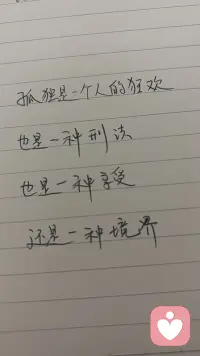 孤独是一个人的狂欢
也是一种刑法
也是一种享受
还是一种境界